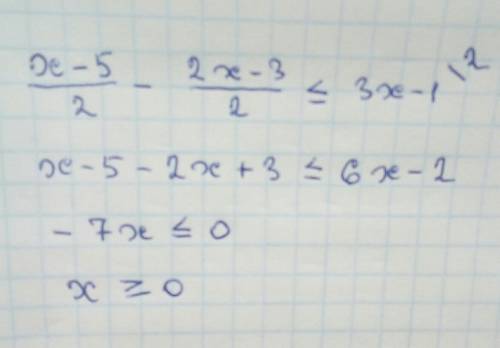 (x-5)/2 - (2x-3)/2 ≤ 3x-1 \2
x-5-2x+3 ≤ 6x-2
-7x ≤ 0
x ≥ 0